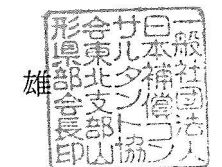 雄
一般社団法人
日本補償コン
サルタント協
会東北支部山
形県部会長印